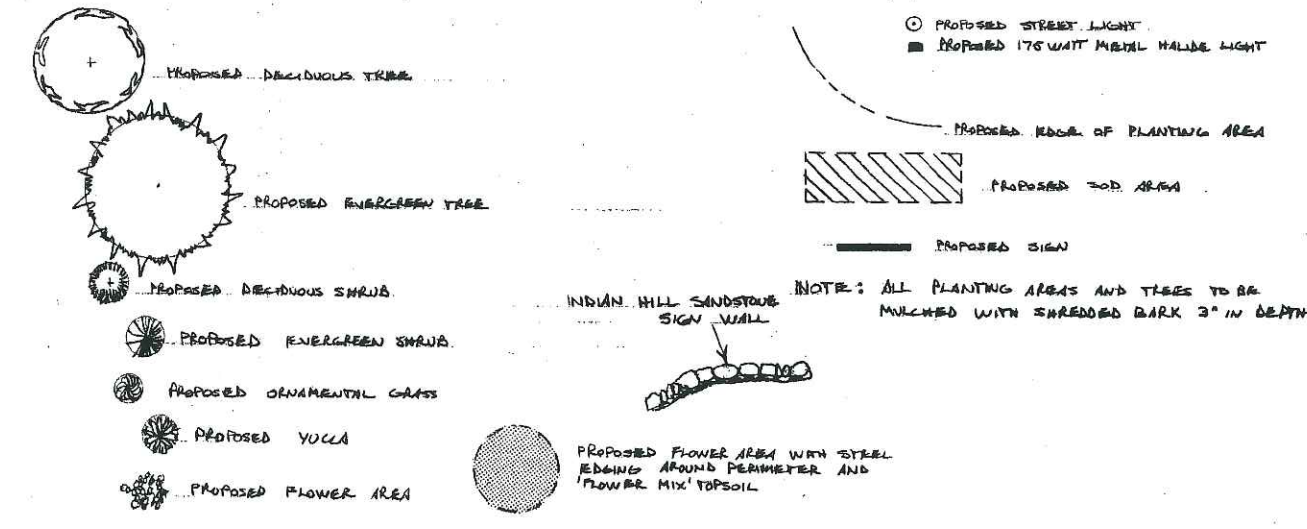 PROPOSED DECIDUOUS TREE
PROPOSED EVERGREEN TREE
PROPOSED DECIDUOUS SHRUB
PROPOSED EVERGREEN SHRUB
PROPOSED ORNAMENTAL GRASS
PROPOSED YUCCA
PROPOSED FLOWER AREA
INDIAN HILL SANDSTONE
SIGN WALL
PROPOSED FLOWER AREA WITH STEEL
EDGING AROUND PERIMETER AND
'FLOWER MIX' TOPSOIL
PROPOSED STREET LIGHT
PROPOSED 175 WATT METAL HALIDE LIGHT
PROPOSED EDGE OF PLANTING AREA
PROPOSED SOD AREA
PROPOSED SIGN
NOTE: ALL PLANTING AREAS AND TREES TO BE
MULCHED WITH SHREDDED BARK 3" IN DEPTH